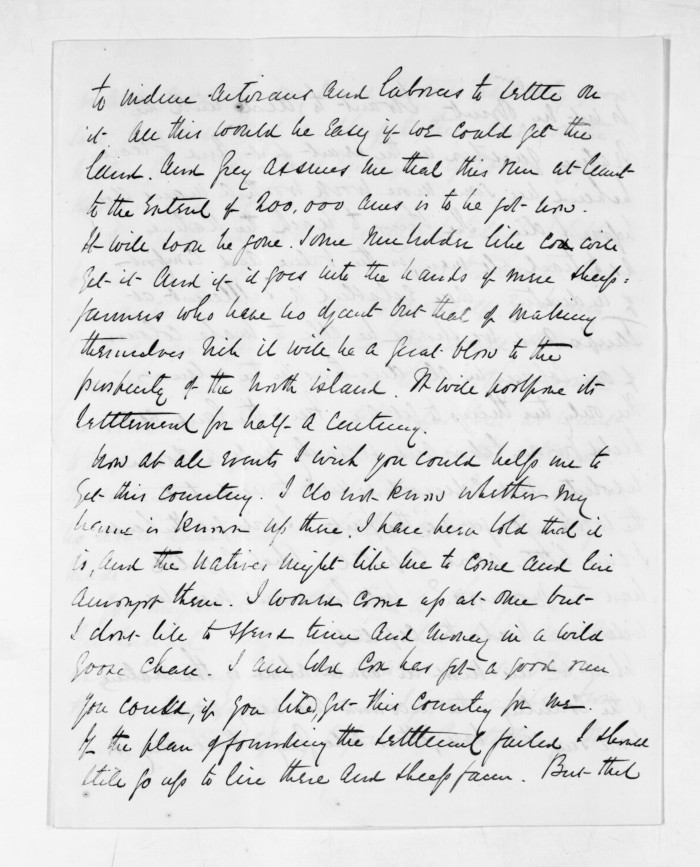 to induce artizans and laborers to settle on
it. All this would be easy if we could get the
land. And Grey assures me that this run at least
to the extent of 200,000 acres is to be got now.
It will soon be gone. Some runholder like Cox will
get it and if it goes into the hands of mere sheep=
farmers who have no object but that of making
themselves rich it will be a great blow to the
prosperity of the North island. It will postpone its
settlement for half a century.
Now at all events I wish you could help me to
get this country. I do not know whether my
name is known up there. I have been told that it
is, and the natives might like me to come and live
amongst them. I would come up at once but
I dont like to spend time and money in a wild
goose chase. I am told Cox has got a good run
you could, if you liked, get this country for me.
If the plan of founding the settlement failed I should
still go up to live there and sheep farm. But that